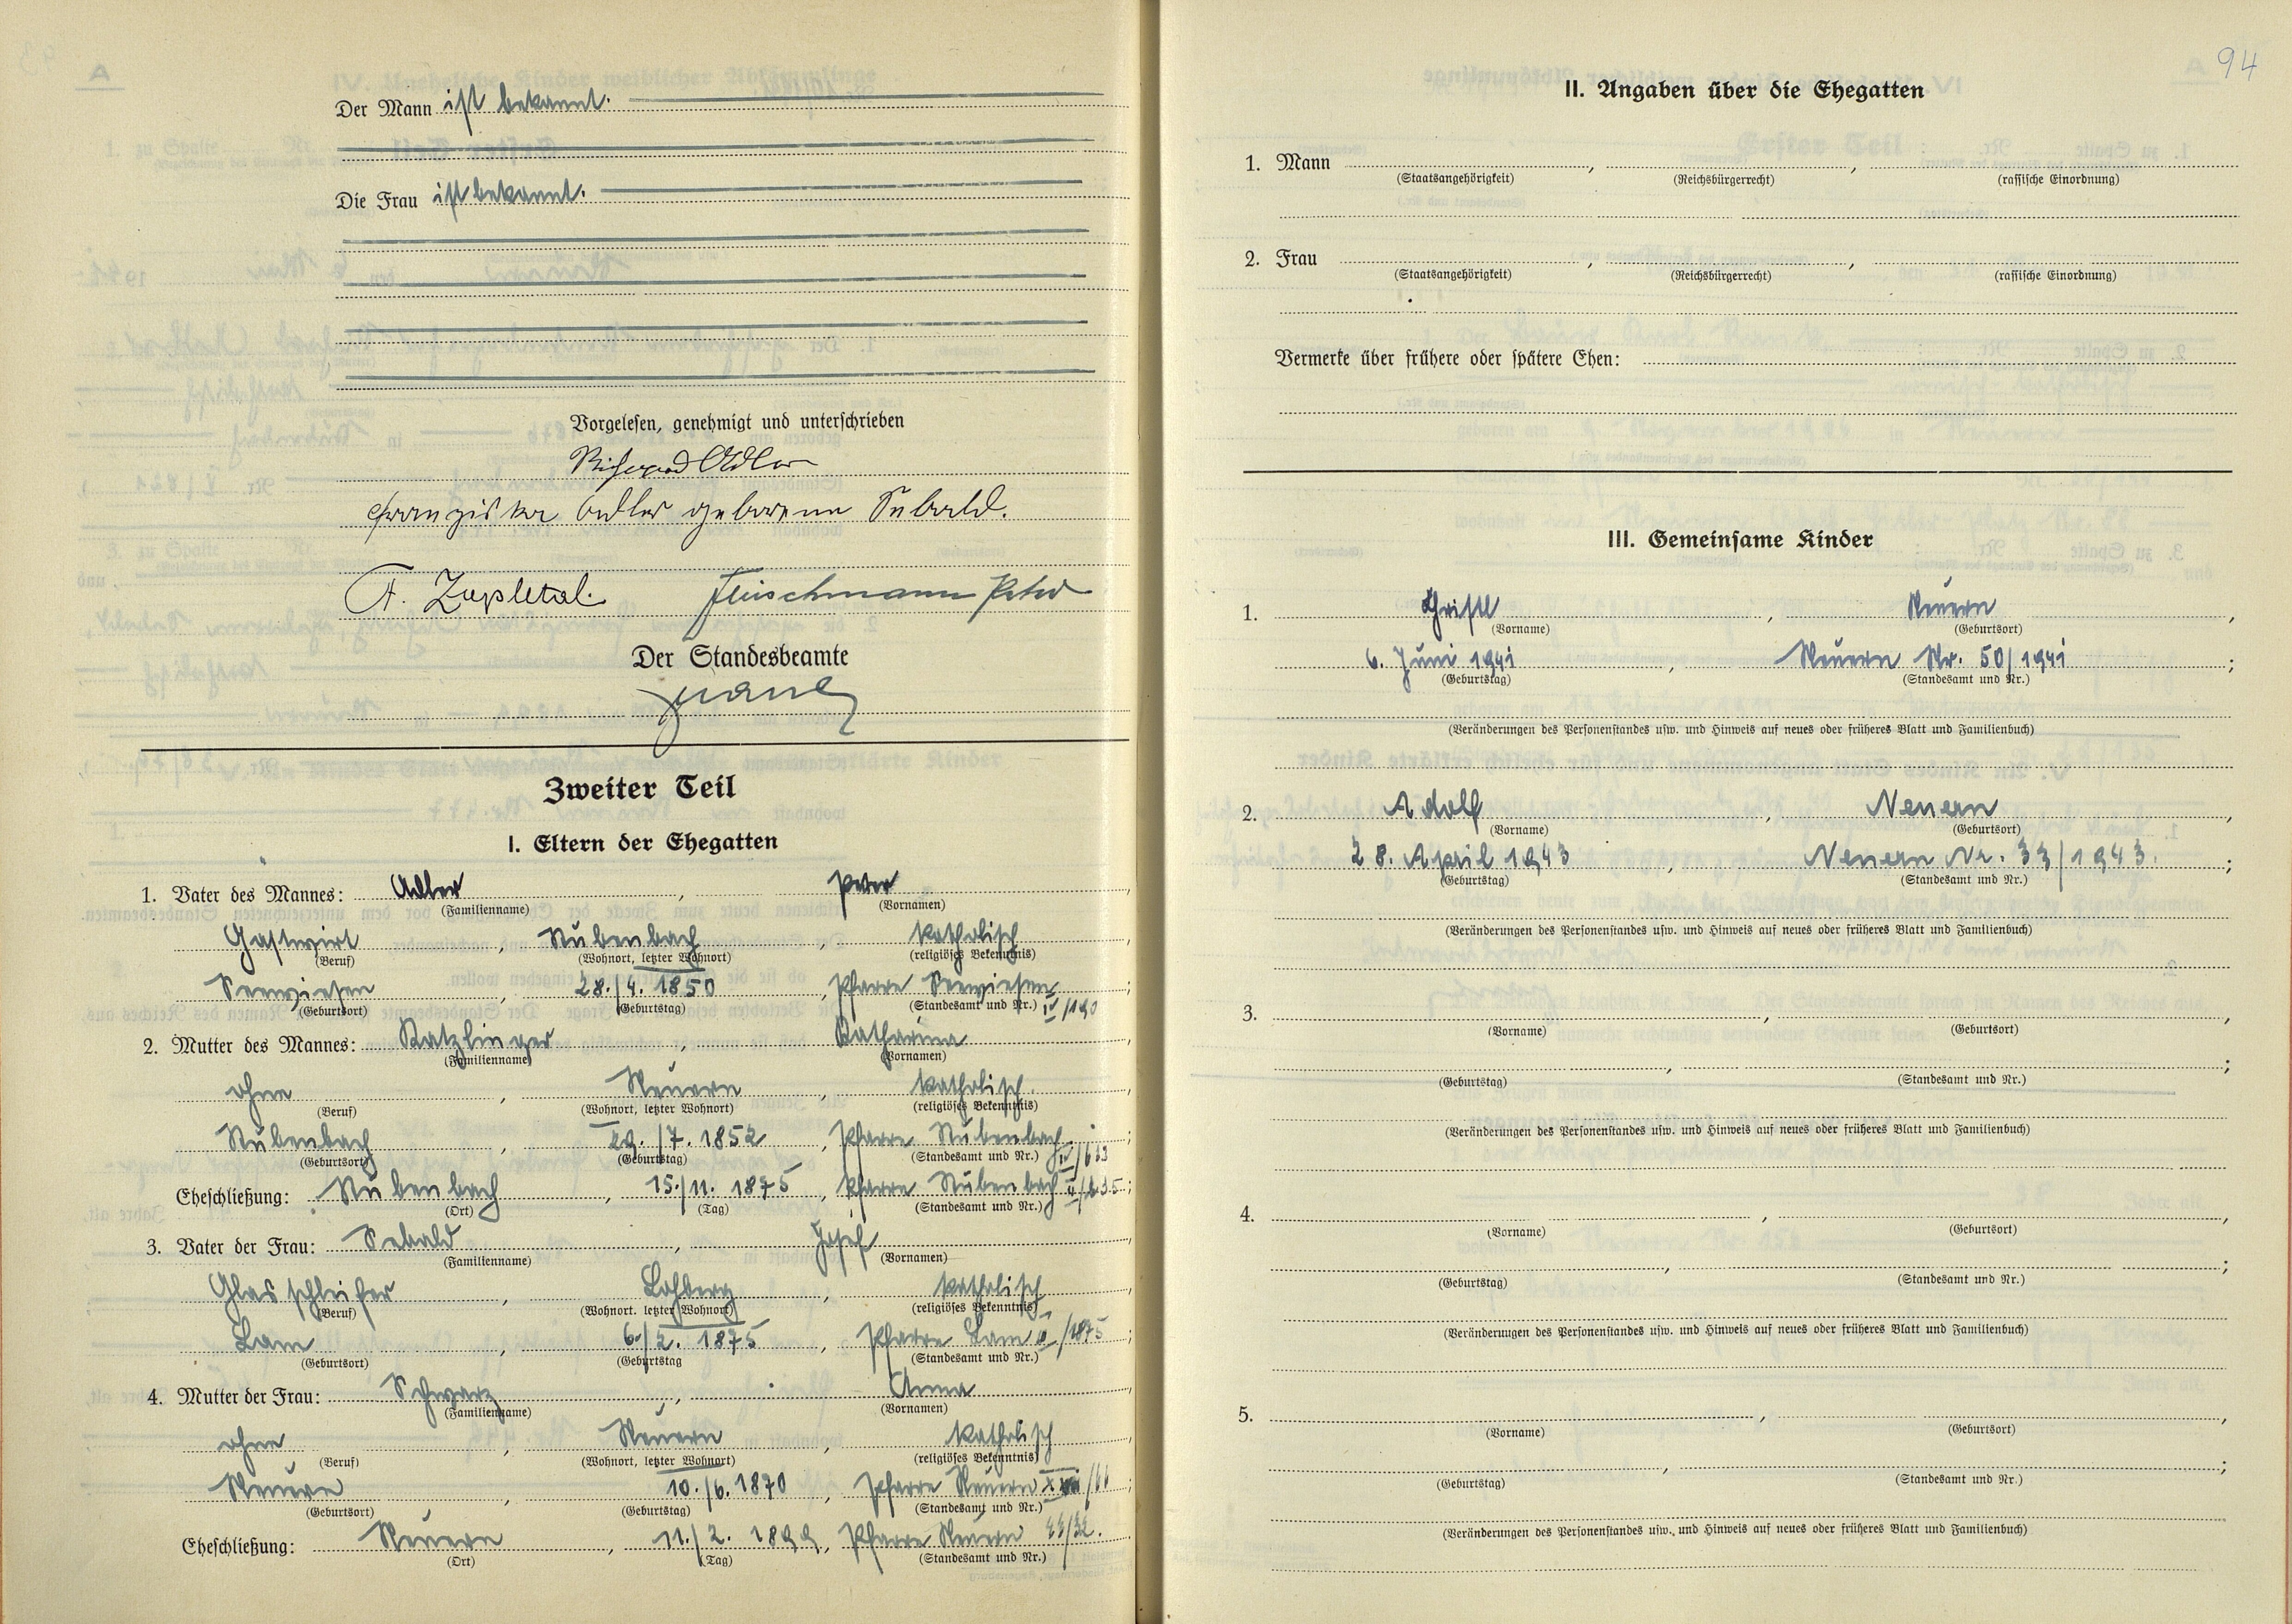 Der Mann ist bekannt.
Die Frau ist bekannt.
Vorgelesen, genehmigt und unterschrieben
Adler
Franziska Adler geborene Sebald.
F. Zapletal. Fleischmann Peter
Der Standesbeamte
Zweiter Teil
I. Eltern der Ehegatten
1. Vater des Mannes: Adler, Peter,
(Familienname) (Vornamen)
Gastwirt, Stubenbach, katholisch,
(Beruf) (Wohnort, letzter Wohnort) (religiöses Bekenntnis)
Seewiesen, 28./4. 1850, Pfarre Seewiesen IV/190;
(Geburtsort) (Geburtstag) (Standesamt und Nr.)
2. Mutter des Mannes: Katzlinger, Katharina,
(Familienname) (Vornamen)
ohne, Neuern, katholisch,
(Beruf) (Wohnort, letzter Wohnort) (religiöses Bekenntnis)
Stubenbach, 29./7. 1852, Pfarre Stubenbach;
(Geburtsort) (Geburtstag) (Standesamt und Nr.)
Eheschließung: Stubenbach, 15./11. 1875, Pfarre Stubenbach;
(Ort) (Tag) (Standesamt und Nr.)
3. Vater der Frau: Sebald, Josef,
(Familienname) (Vornamen)
Glasschleifer, Lohberg, katholisch,
(Beruf) (Wohnort, letzter Wohnort) (religiöses Bekenntnis)
Lam, 6./2. 1875, Pfarre Lam /1875;
(Geburtsort) (Geburtstag (Standesamt und Nr.)
4. Mutter der Frau: Schwarz, Anna,
(Familienname) (Vornamen)
ohne, Neuern, katholisch,
(Beruf) (Wohnort, letzter Wohnort) (religiöses Bekenntnis)
Neuern, 10./6. 1870, Pfarre Neuern /66;
(Geburtsort) (Geburtstag) (Standesamt und Nr.)
Eheschließung: Neuern, 11./2. 1899, Pfarre Neuern
(Ort) (Tag) (Standesamt und Nr.)
94
II. Angaben über die Ehegatten
1. Mann , ,
(Staatsangehörigkeit) (Reichsbürgerrecht) (rassische Einordnung)
2. Frau , ,
(Staatsangehörigkeit) (Reichsbürgerrecht) (rassische Einordnung)
Vermerke über frühere oder spätere Ehen:
III. Gemeinsame Kinder
1. Christl, Neuern,
(Vorname) (Geburtsort)
6. Juni 1941, Neuern Nr. 50/1941;
(Geburtstag) (Standesamt und Nr.)
(Veränderungen des Personenstandes usw. und Hinweis auf neues oder früheres Blatt und Familienbuch)
2. Adolf, Neuern,
(Vorname) (Geburtsort)
28. April 1943, Neuern Nr. 33/1943.;
(Geburtstag) (Standesamt und Nr.)
(Veränderungen des Personenstandes usw. und Hinweis auf neues oder früheres Blatt und Familienbuch)
3. , ,
(Vorname) (Geburtsort)
, ;
(Geburtstag) (Standesamt und Nr.)
(Veränderungen des Personenstandes usw. und Hinweis auf neues oder früheres Blatt und Familienbuch)
4. , ,
(Vorname) (Geburtsort)
, ;
(Geburtstag) (Standesamt und Nr.)
(Veränderungen des Personenstandes usw. und Hinweis auf neues oder früheres Blatt und Familienbuch)
5. , ,
(Vorname) (Geburtsort)
, ;
(Geburtstag) (Standesamt und Nr.)
(Veränderungen des Personenstandes usw. und Hinweis auf neues oder früheres Blatt und Familienbuch)